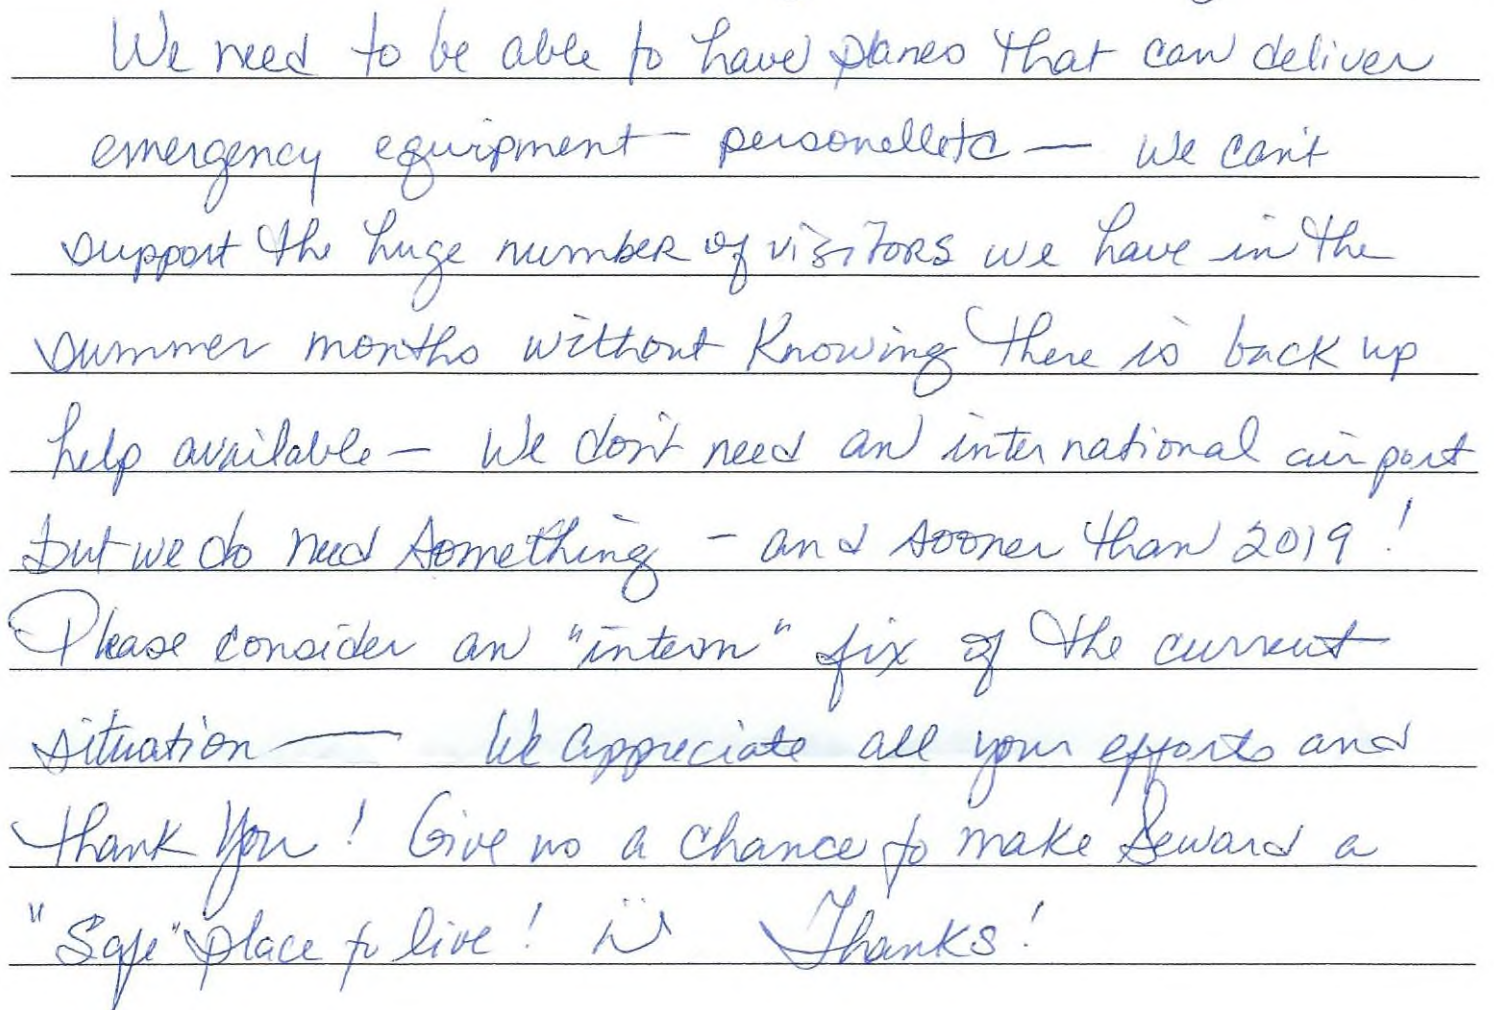 We need to be able to have planes that can deliver
emergency equipment - personell etc — we can't
support the huge number of visitors we have in the
summer months without knowing there is back up
help available — We don't need an international airport
but we do need something - and sooner than 2019!
Please consider an "intern" fix of the current
situation — We appreciate all your efforts and
thank you! Give us a chance to make Seward a
"Safe" place to live! Thanks!